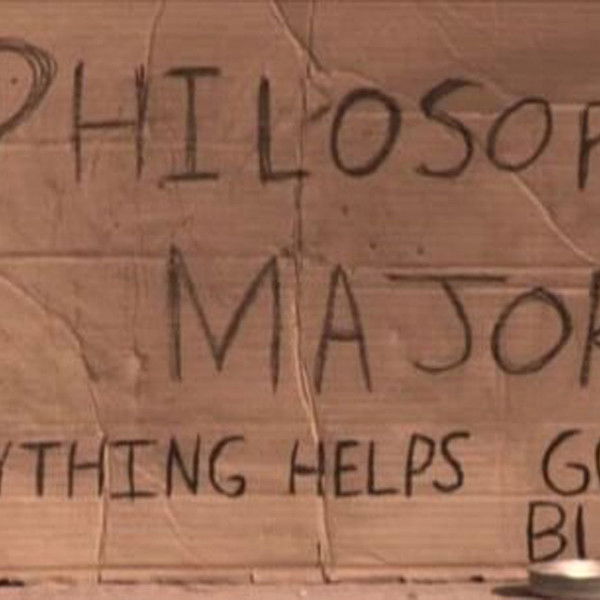 PHILOSOP
MAJOR
YTHING HELPS GO
BL